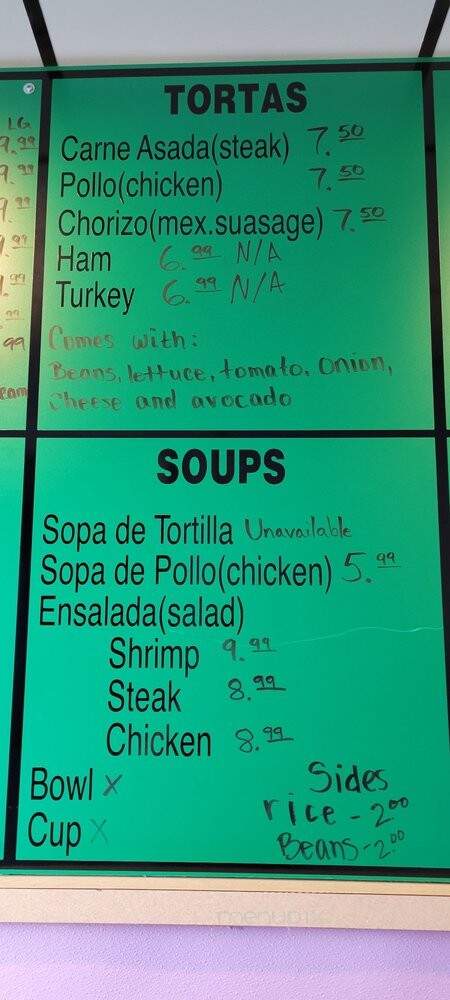 LG
TORTAS
Carne Asada(steak) 7.50
Pollo(chicken) 7.50
Chorizo(mex.suasage) 7.50
Ham 6.99 N/A
Turkey 6.99 N/A
Comes with:
Beans, lettuce, tomato, onion,
Cheese and avocado
SOUPS
Sopa de Tortilla Unavailable
Sopa de Pollo(chicken) 5.99
Ensalada(salad)
Shrimp 9.99
Steak 8.99
Chicken 8.99
Bowl x
Cup x
Sides
rice - 2.00
Beans - 2.00